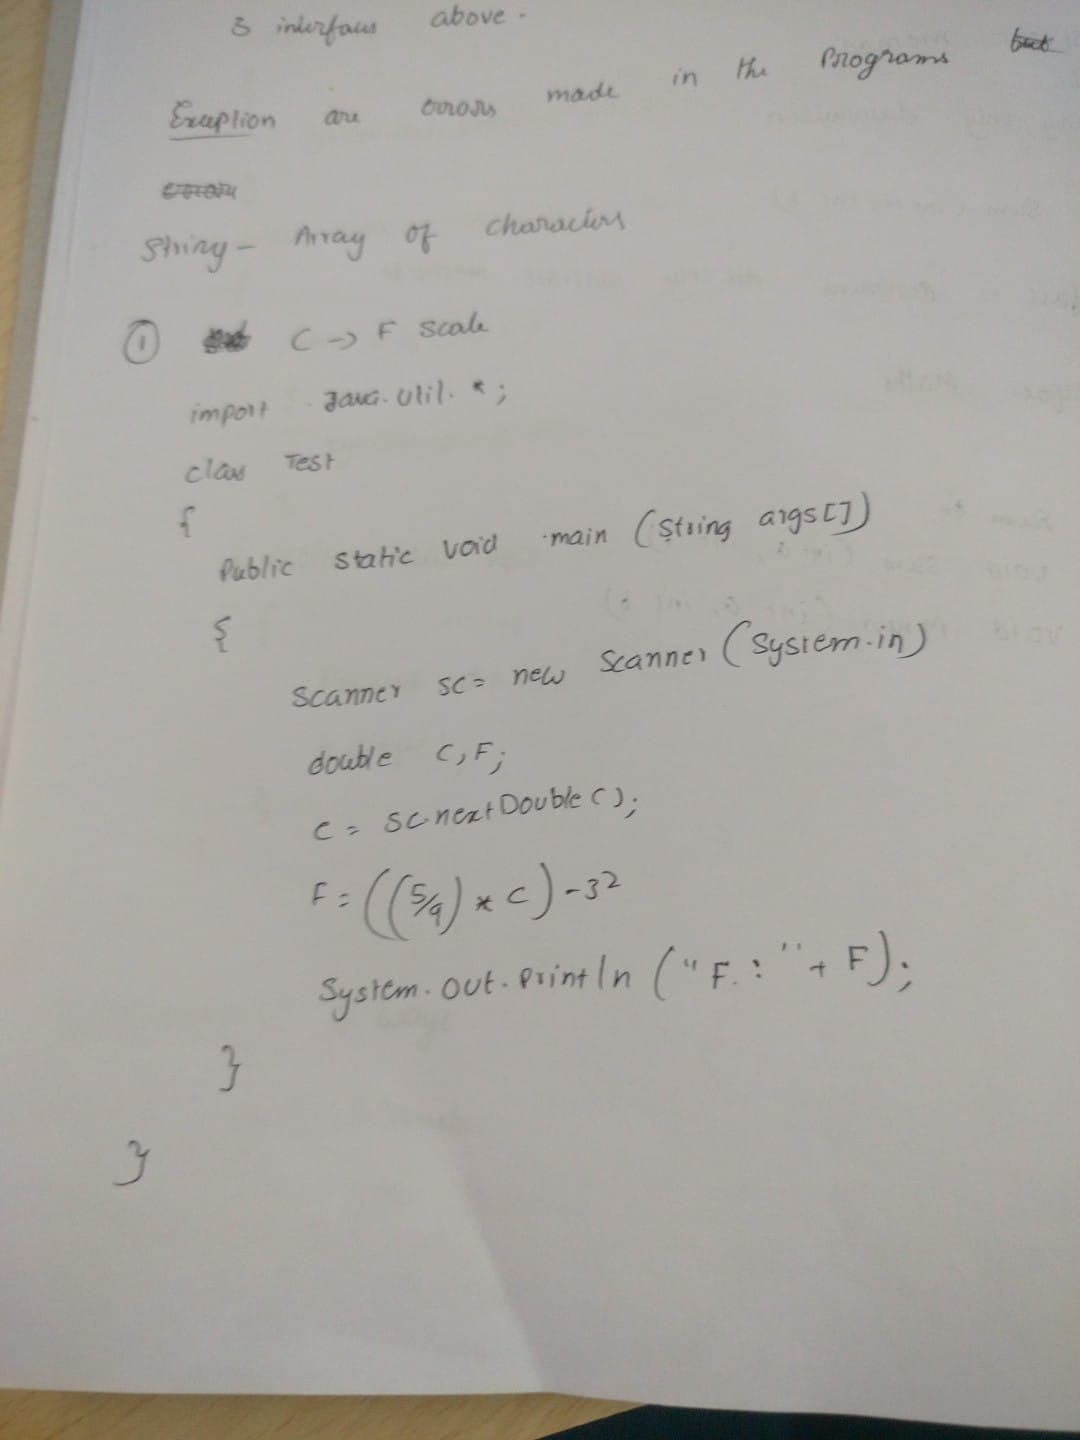 3 interfaces above.
Exception are errors made in the Programs but
errors
String - Array of characters
① C -> F scale
import java.util.*;
class Test
{
Public static void main (String args[])
{
Scanner sc = new Scanner (System.in)
double C, F;
C = sc.nextDouble();
F = ((5/9) * C) - 32
System.out.println ("F.: " + F);
}
}